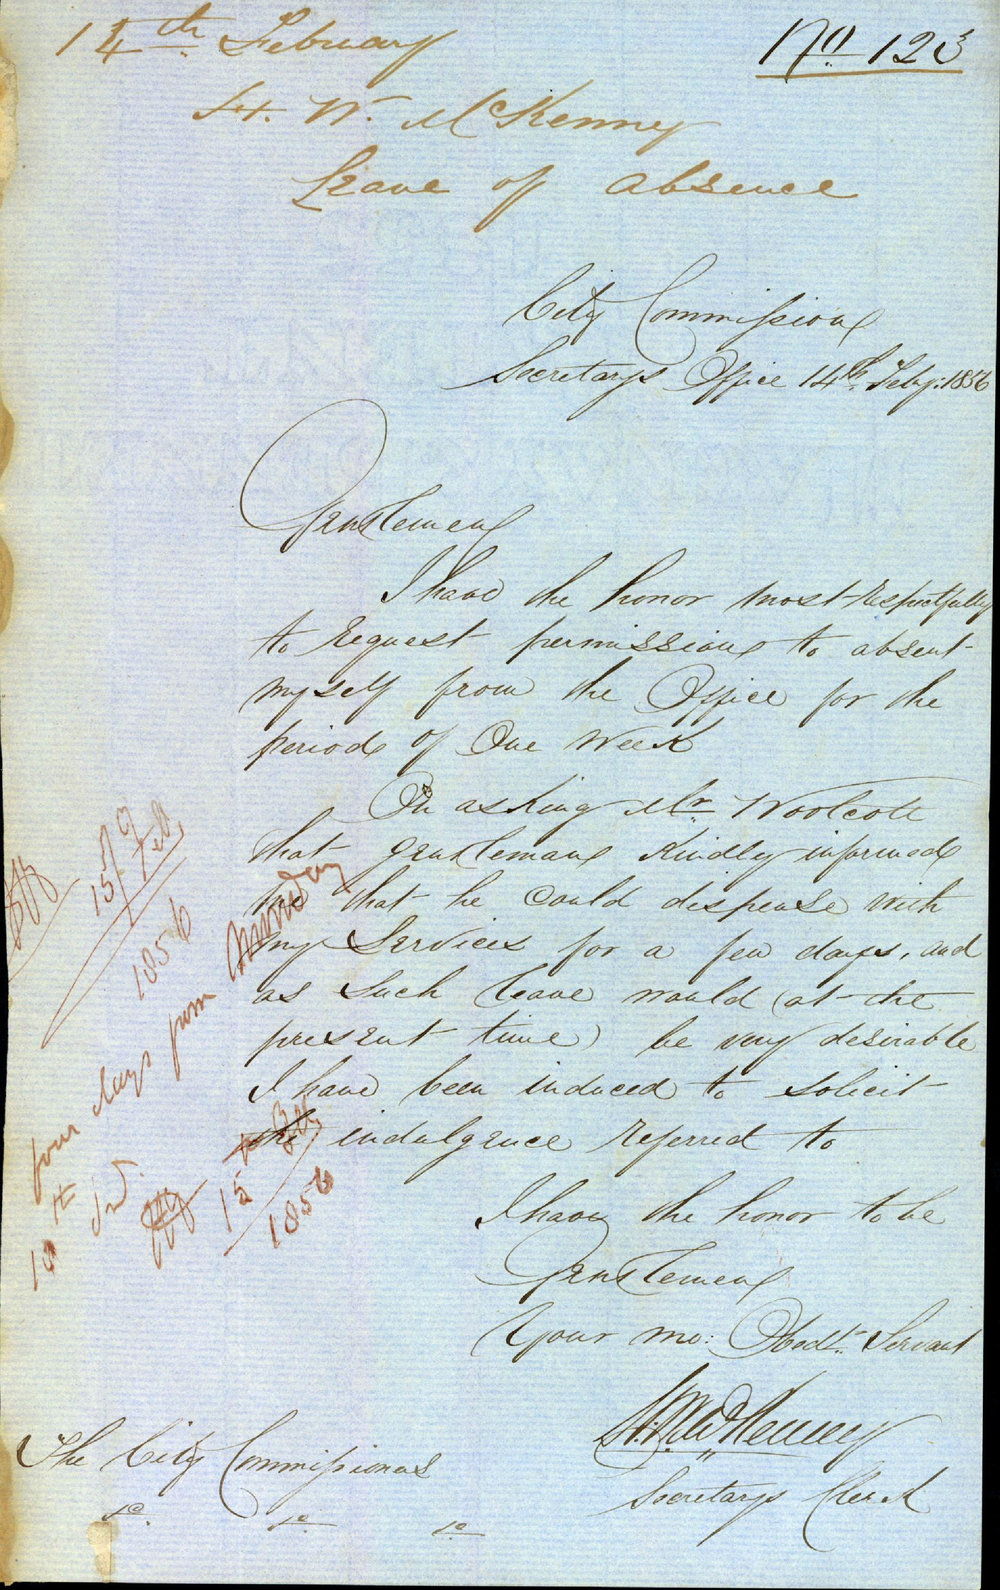 14th February
No 123
H. W. McKenny
Leave of absence
City Commission
Secretarys Office 14th Feby: 1856
Gentlemen
I have the honor most respectfully
to request permission to absent
myself from the Office for the
period of One Week
On asking Mr Woolcott
that gentleman Kindly informed
me that he could dispense with
my Services for a few days, and
as such leave would (at the
present time) be very desirable
I have been induced to solicit
the indulgence referred to
I have the honor to be
Gentlemen
Your mo: Obedt. Servant
H. W. McKenny
Secretarys Clerk
The City Commissioners
15/ Feb
1856
four days from Monday
18th
15
1856